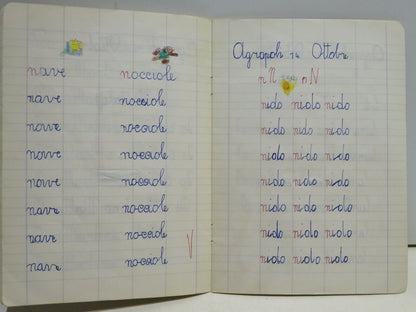 nave nocciole
nave nocciole
nave nocciole
nave nocciole
nave nocciole
nave nocciole
nave nocciole
nave nocciole
V
Agropoli 14 Ottobre
n N n N
nido nido nido
nido nido nido
nido nido nido
nido nido nido
nido nido nido
nido nido nido
nido nido nido